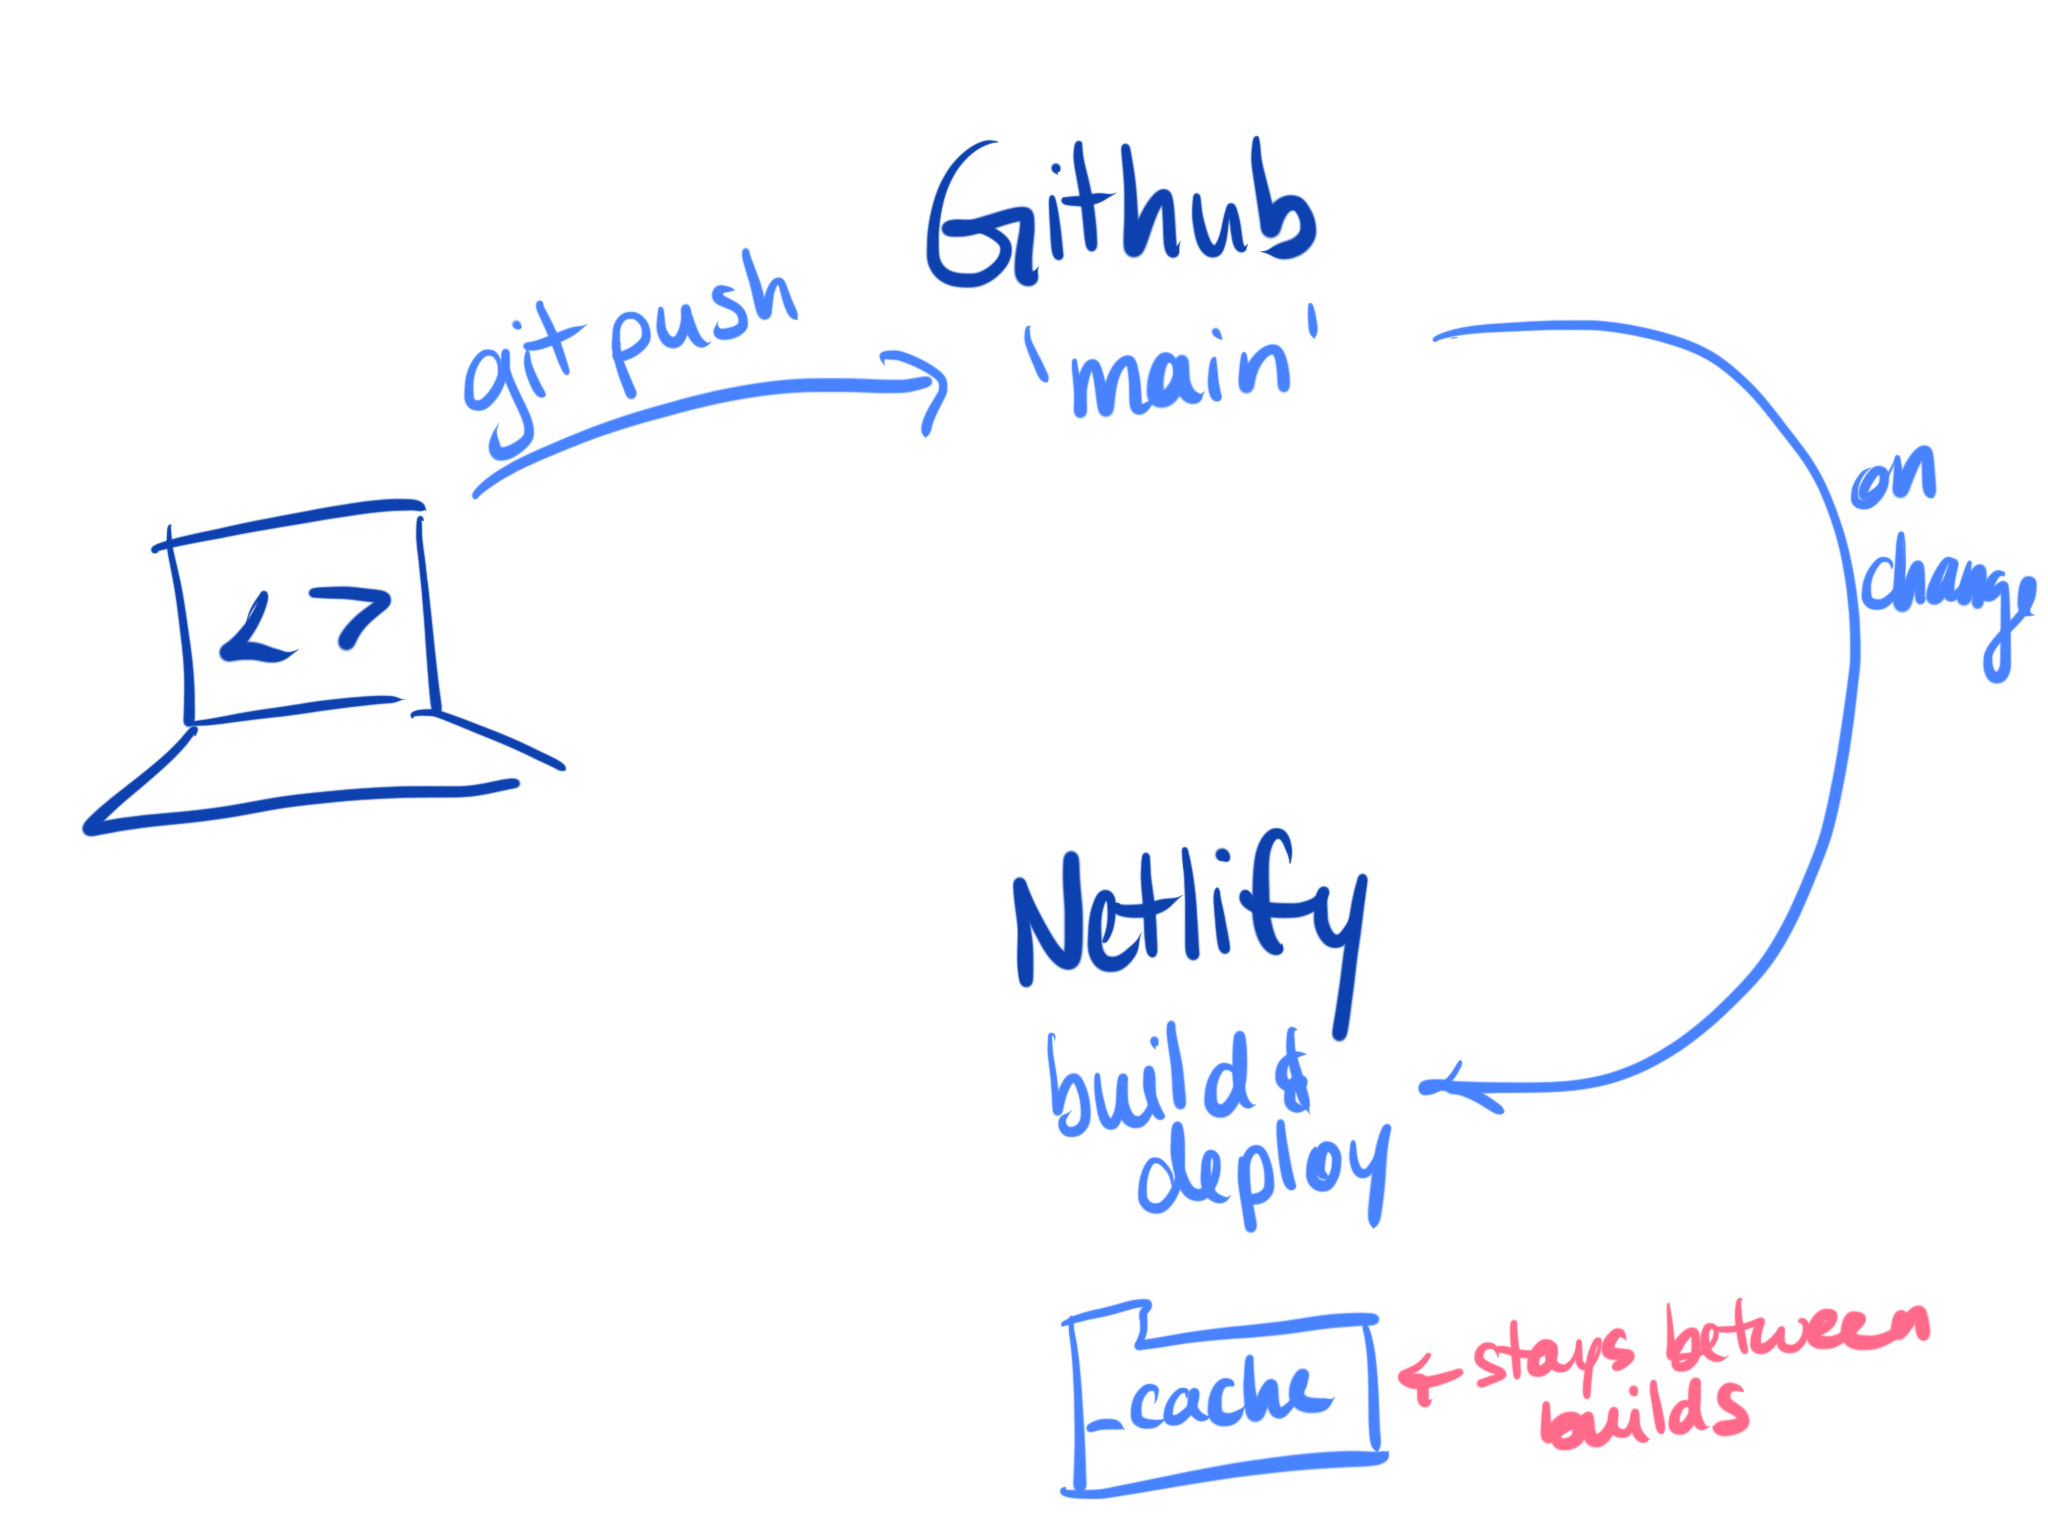 Github
git push
'main'
on
change
< >
Netlify
build &
deploy
_cache
stays between
builds